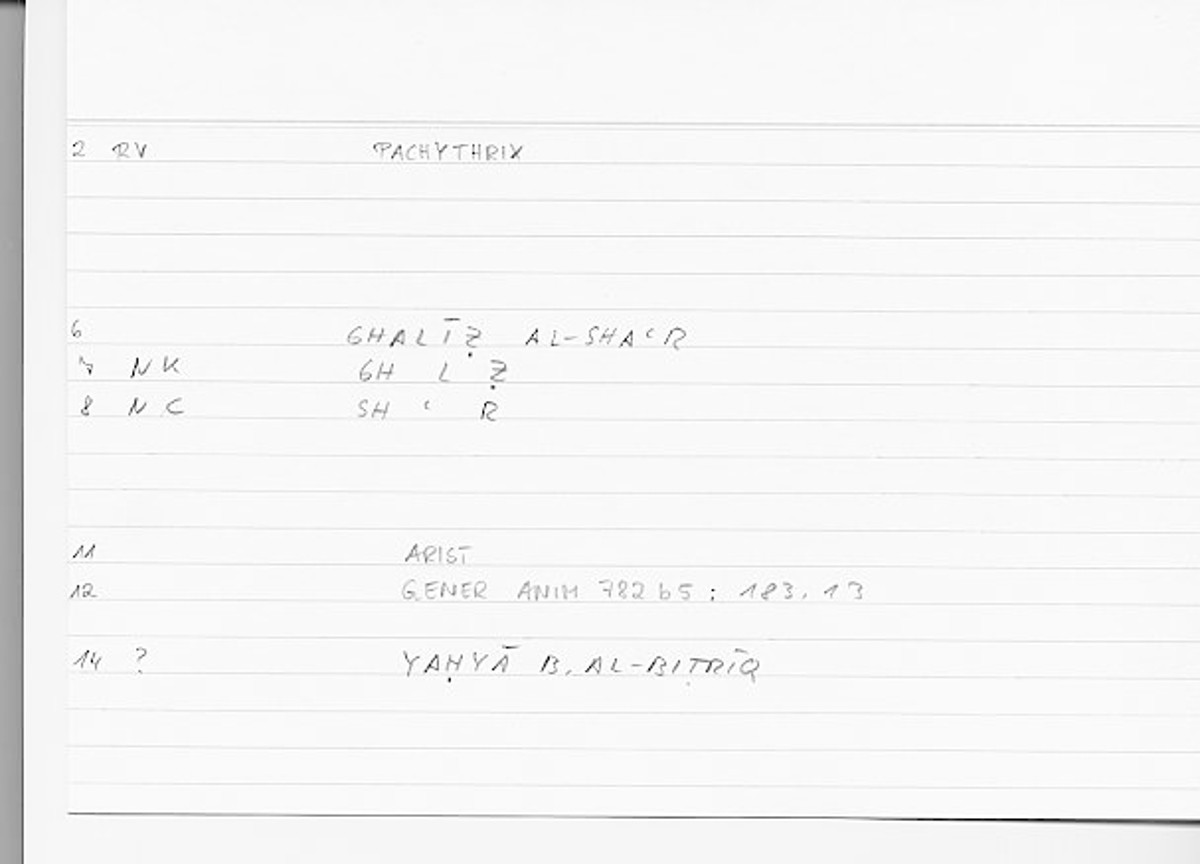 2 RV PACHYTHRIX
6 GHALĪẒ AL-SHAʿR
7 NK GH L Ẓ
8 NC SH ʿ R
11 ARIST
12 GENER ANIM 782 b5 : 183, 13
14 ? YAḤYĀ B. AL-BIṬRĪQ